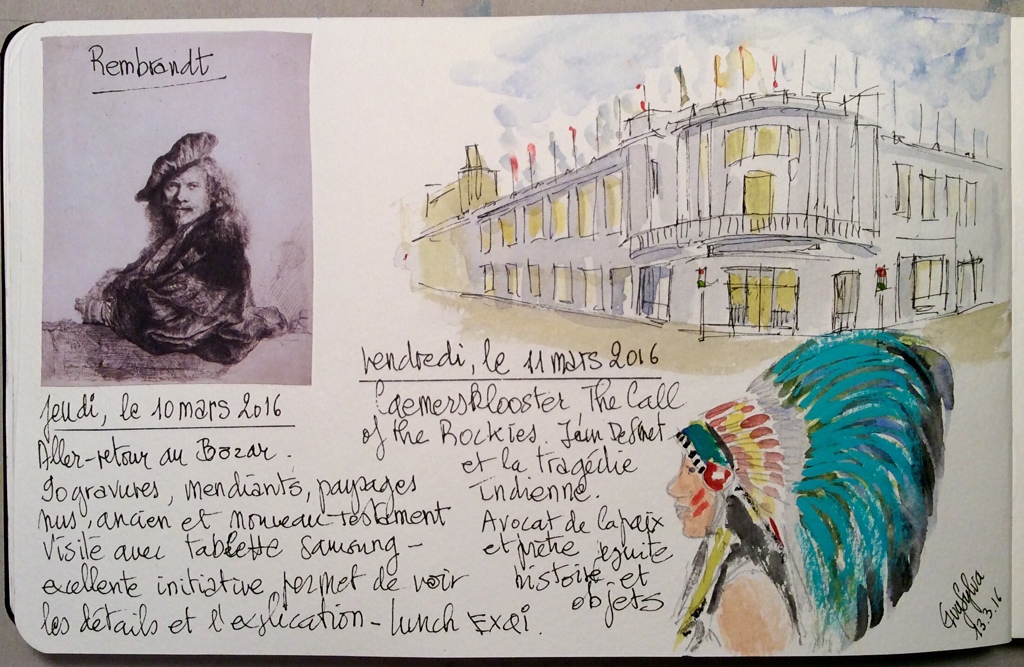 Rembrandt
Jeudi, le 10 mars 2016
Aller-retour au Bozar.
90 gravures, mendiants, paysages
nus, ancien et nouveau-testament
Visite avec tablette Samsung -
excellente initiative permet de voir
les détails et l'explication - Lunch EXQI.
vendredi, le 11 mars 2016
Caermersklooster, The Call
of the Rockies. Jean De Smet
et la tragédie
indienne.
Avocat de la paix
et prêtre jesuite
histoire et
objets
13.3.16